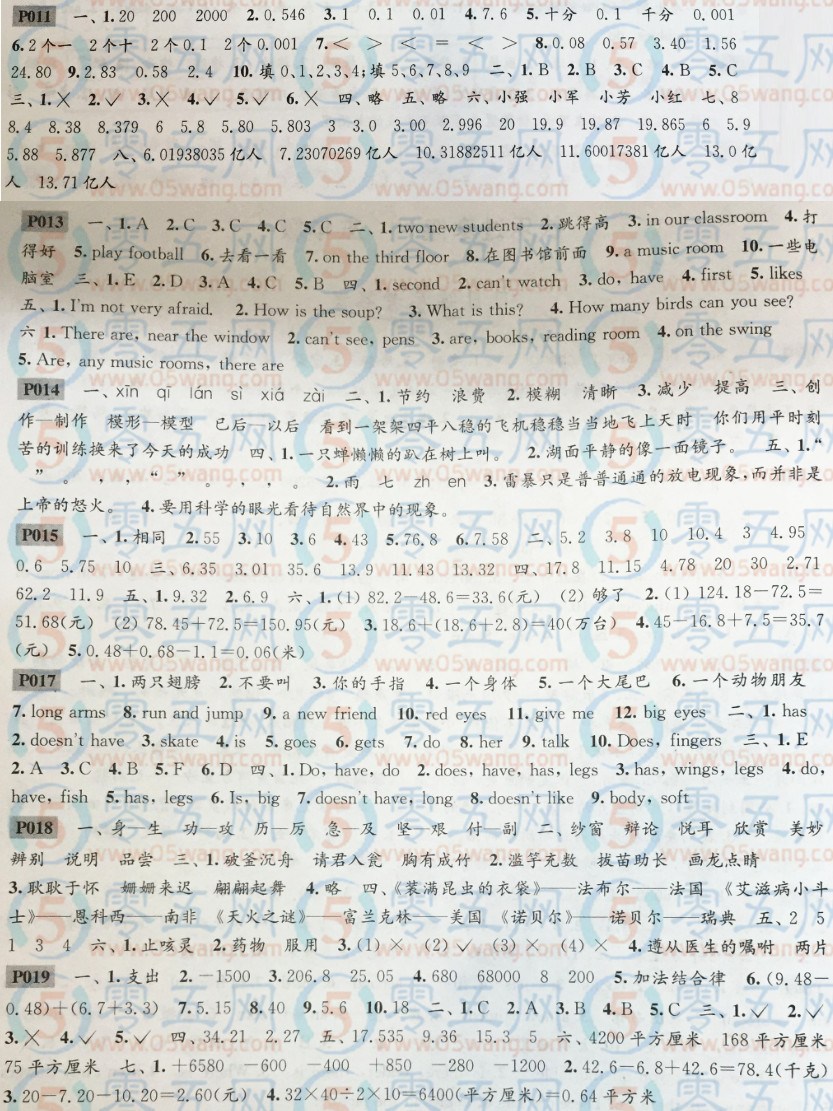 P011 一、1.20 200 2000 2.0.546 3.1 0.1 0.01 4.7.6 5.十分 0.1 千分 0.001
6.2个一 2个十 2个0.1 2个0.001 7.< > < = < > 8.0.08 0.57 3.40 1.56
24.80 9.2.83 0.58 2.4 10.填0、1、2、3、4;填5、6、7、8、9 二、1.B 2.B 3.C 4.B 5.C
三、1.× 2.✓ 3.× 4.✓ 5.✓ 6.× 四、略 五、略 六、小强 小军 小芳 小红 七、8
8.4 8.38 8.379 6 5.8 5.80 5.803 3 3.0 3.00 2.996 20 19.9 19.87 19.865 6 5.9
5.88 5.877 八、6.01938035亿人 7.23070269亿人 10.31882511亿人 11.60017381亿人 13.0亿
人 13.71亿人
P013 一、1.A 2.C 3.C 4.C 5.C 二、1.two new students 2.跳得高 3.in our classroom 4.打
得好 5.play football 6.去看一看 7.on the third floor 8.在图书馆前面 9.a music room 10.一些电
脑室 三、1.E 2.D 3.A 4.C 5.B 四、1.second 2.can't watch 3.do, have 4.first 5.likes
五、1.I'm not very afraid. 2.How is the soup? 3.What is this? 4.How many birds can you see?
六 1.There are, near the window 2.can't see, pens 3.are, books, reading room 4.on the swing
5.Are, any music rooms, there are
P014 一、xīn qī lán sì xiá zài 二、1.节约 浪费 2.模糊 清晰 3.减少 提高 三、创
作—制作 模形—模型 已后—以后 看到一架架四平八稳的飞机稳稳当当地飞上天时 你们用平时刻
苦的训练换来了今天的成功 四、1.一只蝉懒懒的趴在树上叫。 2.湖面平静的像一面镜子。 五、1.“
”。 ， ， “ ”。 ， ， 。 2.雨 七 zh en 3.雷暴只是普普通通的放电现象,而并非是
上帝的怒火。 4.要用科学的眼光看待自然界中的现象。
P015 一、1.相同 2.55 3.10 3.6 4.43 5.76.8 6.7.58 二、5.2 3.8 10 10.4 3 4.95
0.6 5.75 10 三、6.35 3.01 35.6 13.9 11.43 13.32 四、17.8 11.15 4.78 20 30 2.71
62.2 11.9 五、1.9.32 2.6.9 六、1.(1) 82.2-48.6=33.6(元) (2) 够了 2.(1) 124.18-72.5=
51.68(元) (2) 78.45+72.5=150.95(元) 3.18.6+(18.6+2.8)=40(万台) 4.45-16.8+7.5=35.7
(元) 5.0.48+0.68-1.1=0.06(米)
P017 一、1.两只翅膀 2.不要叫 3.你的手指 4.一个身体 5.一个大尾巴 6.一个动物朋友
7.long arms 8.run and jump 9.a new friend 10.red eyes 11.give me 12.big eyes 二、1.has
2.doesn't have 3.skate 4.is 5.goes 6.gets 7.do 8.her 9.talk 10.Does, fingers 三、1.E
2.A 3.C 4.B 5.F 6.D 四、1.Do, have, do 2.does, have, has, legs 3.has, wings, legs 4.do,
have, fish 5.has, legs 6.Is, big 7.doesn't have, long 8.doesn't like 9.body, soft
P018 一、身—生 功—攻 历—厉 急—及 坚—艰 付—副 二、纱窗 辩论 悦耳 欣赏 美妙
辨别 说明 品尝 三、1.破釜沉舟 请君入瓮 胸有成竹 2.滥竽充数 拔苗助长 画龙点睛
3.耿耿于怀 姗姗来迟 翩翩起舞 4.略 四、《装满昆虫的衣袋》——法布尔——法国 《艾滋病小斗
士》——恩科西——南非 《天火之谜》——富兰克林——美国 《诺贝尔》——诺贝尔——瑞典 五、2 5
1 3 4 六、1.止咳灵 2.药物 服用 3.(1) × (2) ✓ (3) × (4) × 4.遵从医生的嘱咐 两片
P019 一、1.支出 2.-1500 3.206.8 25.05 4.680 68000 8 200 5.加法结合律 6.(9.48-
0.48)+(6.7+3.3) 7.5.15 8.40 9.5.6 10.18 二、1.C 2.A 3.B 4.B 5.C 三、1.✓ 2.✓
3.× 4.✓ 5.✓ 四、34.21 2.27 五、17.535 9.36 15.3 5 六、4200平方厘米 168平方厘米
75平方厘米 七、1.+6580 -600 -400 +850 -280 -1200 2.42.6-6.8+42.6=78.4(千克)
3.20-7.20-10.20=2.60(元) 4.32×40÷2×10=6400(平方厘米)=0.64平方米